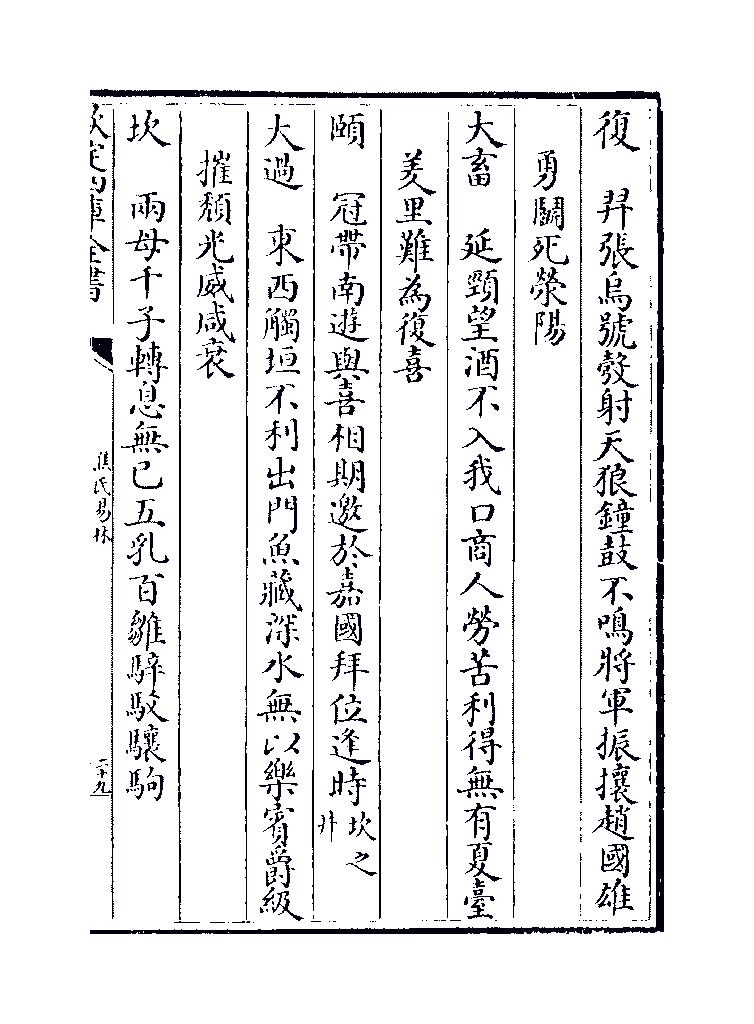 復　羿張烏號彀射天狼鐘鼓不鳴將軍振攘趙國雄
勇鬭死滎陽
大畜　延頸望酒不入我口商人勞苦利得無有夏臺
羑里難為復喜
頤　冠帶南遊與喜相期邀於嘉國拜位逢時坎之
井
大過　東西觸垣不利出門魚藏深水無以樂賓爵級
摧頹光威咸衰
坎　兩母千子轉息無已五乳百雛騂駁驤駒
欽定四庫全書
焦氏易林
二十九